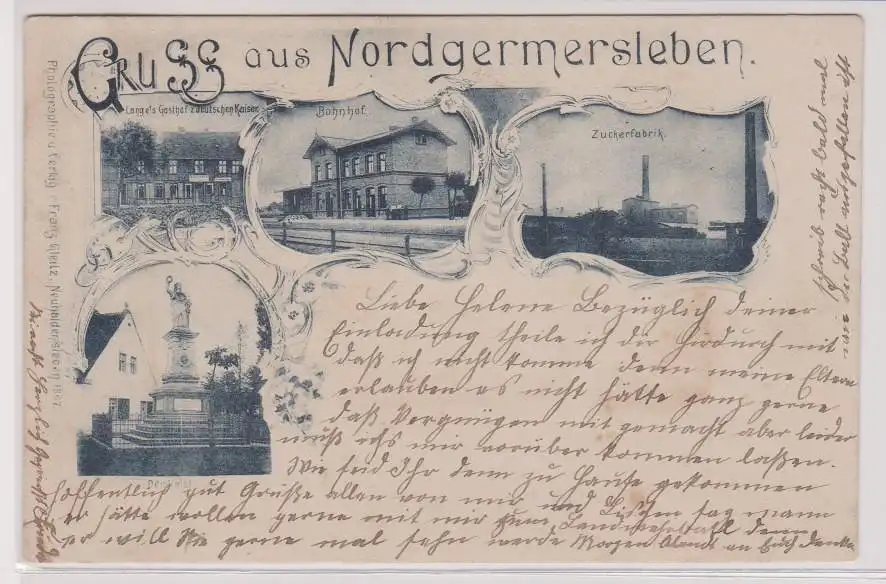 Gruss aus Nordgermersleben.
Lange's Gasthof z. deutschen Kaiser.
Bahnhof.
Zuckerfabrik.
Denkmal
Photographie u. Verlag Franz Neuhaldensleben 1897.
Liebe Helene Bezüglich deiner
Einladung theile ich dir hirdurch mit
daß ich nicht komme denn meine Eltern
erlauben es nicht hätte ganz gerne
daß Vergnügen mit gemacht aber leider
muß ich mir vorüber kommen laßen.
Wie seid Ihr denn zu Hause gekommen
hoffentlich gut Grüße allen von mir und sag mann
er hätte wollen gerne mit mir zum denn
er will Sie gerne mal sehn werde Morgen Abend an Euch denken
schreib recht bald mal
wie der Ball ausgefallen ist
Sei recht herzlich gegrüßt